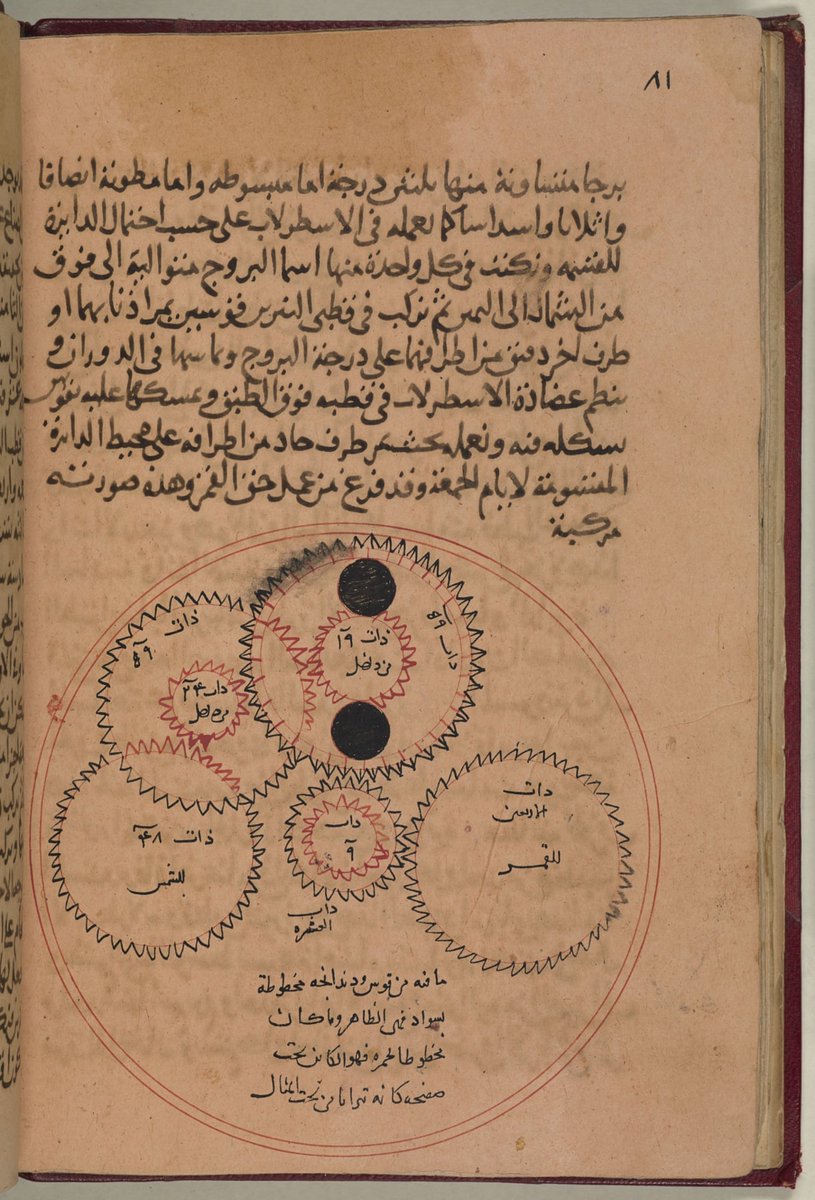 ٨١
برجا متساوية منها بثلثين درجة اما مبسوطه واما مطوية انصافا
واثلاثا واسداسا كما نعمله فى الاسطرلاب على حسب احتمال الدايرة
للقسمه ونكتب فى كل واحدة منها اسما البروج متوالية الى فوق
من الشمال الى اليمين ثم نركب فى قطبى النيرين قوسين يمر اذنابهما او
طرف اخر دقيق من اطرافهما على درجة البروج وتماسها فى الدوران و
ينظم عضادة الاسطرلاب فى قطبه فوق الطبق ونمسكها عليه بفرس
يمسكه فيه ونعمله بحيث يمر طرف حاد من اطرافه على محيط الدايرة
المقسومة لايام الجمعة وقد فرغ من عمل حق القمر وهذه صورته
مركبة
ذات ٥٩
ذات ١٩
من داخل
ذات ٥٩
ذات ٢۴
من داخل
ذات ۴٨
للشمس
ذات
٩
ذات
العشرة
ذات
الاربعين
للقمر
ما فيه من قوس ودندانجه مخطوطة
بسواد فهى الظاهر وما كان
مخطوطا بالحمره فهو الكاين تحت
صفحه كانه ترانا من تحت المثال